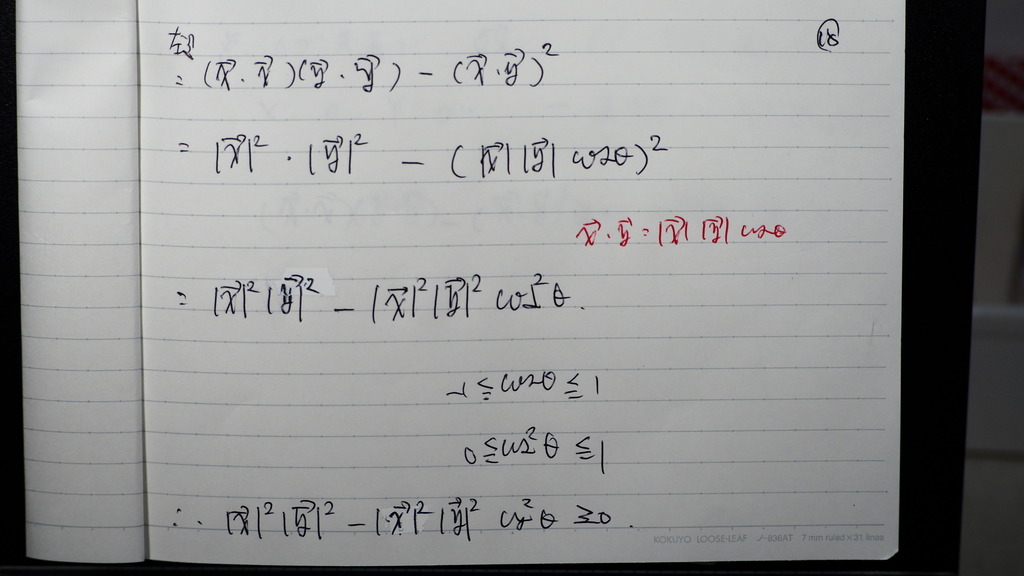 ⑱
= (x⃗・x⃗)(y⃗・y⃗) − (x⃗・y⃗)²
= |x⃗|²・|y⃗|² − (|x⃗||y⃗| cosθ)²
x⃗・y⃗ = |x⃗||y⃗| cosθ
= |x⃗|²|y⃗|² − |x⃗|²|y⃗|² cos²θ.
−1 ≦ cosθ ≦ 1
0 ≦ cos²θ ≦ 1
∴ |x⃗|²|y⃗|² − |x⃗|²|y⃗|² cos²θ ≧ 0.
KOKUYO LOOSE-LEAF ノ-836AT 7 mm ruled × 31 lines